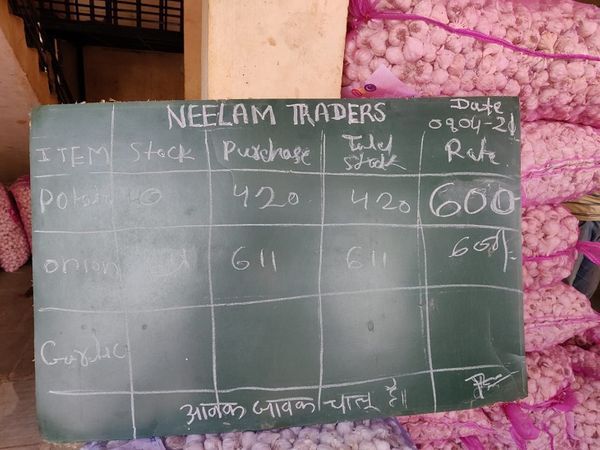 NEELAM TRADERS
Date
0904-21
ITEM Stock Purchase Total Stock Rate
Potato 420 420 600
onion 611 611 600/-
Garlic
आवक जावक चालू है॥